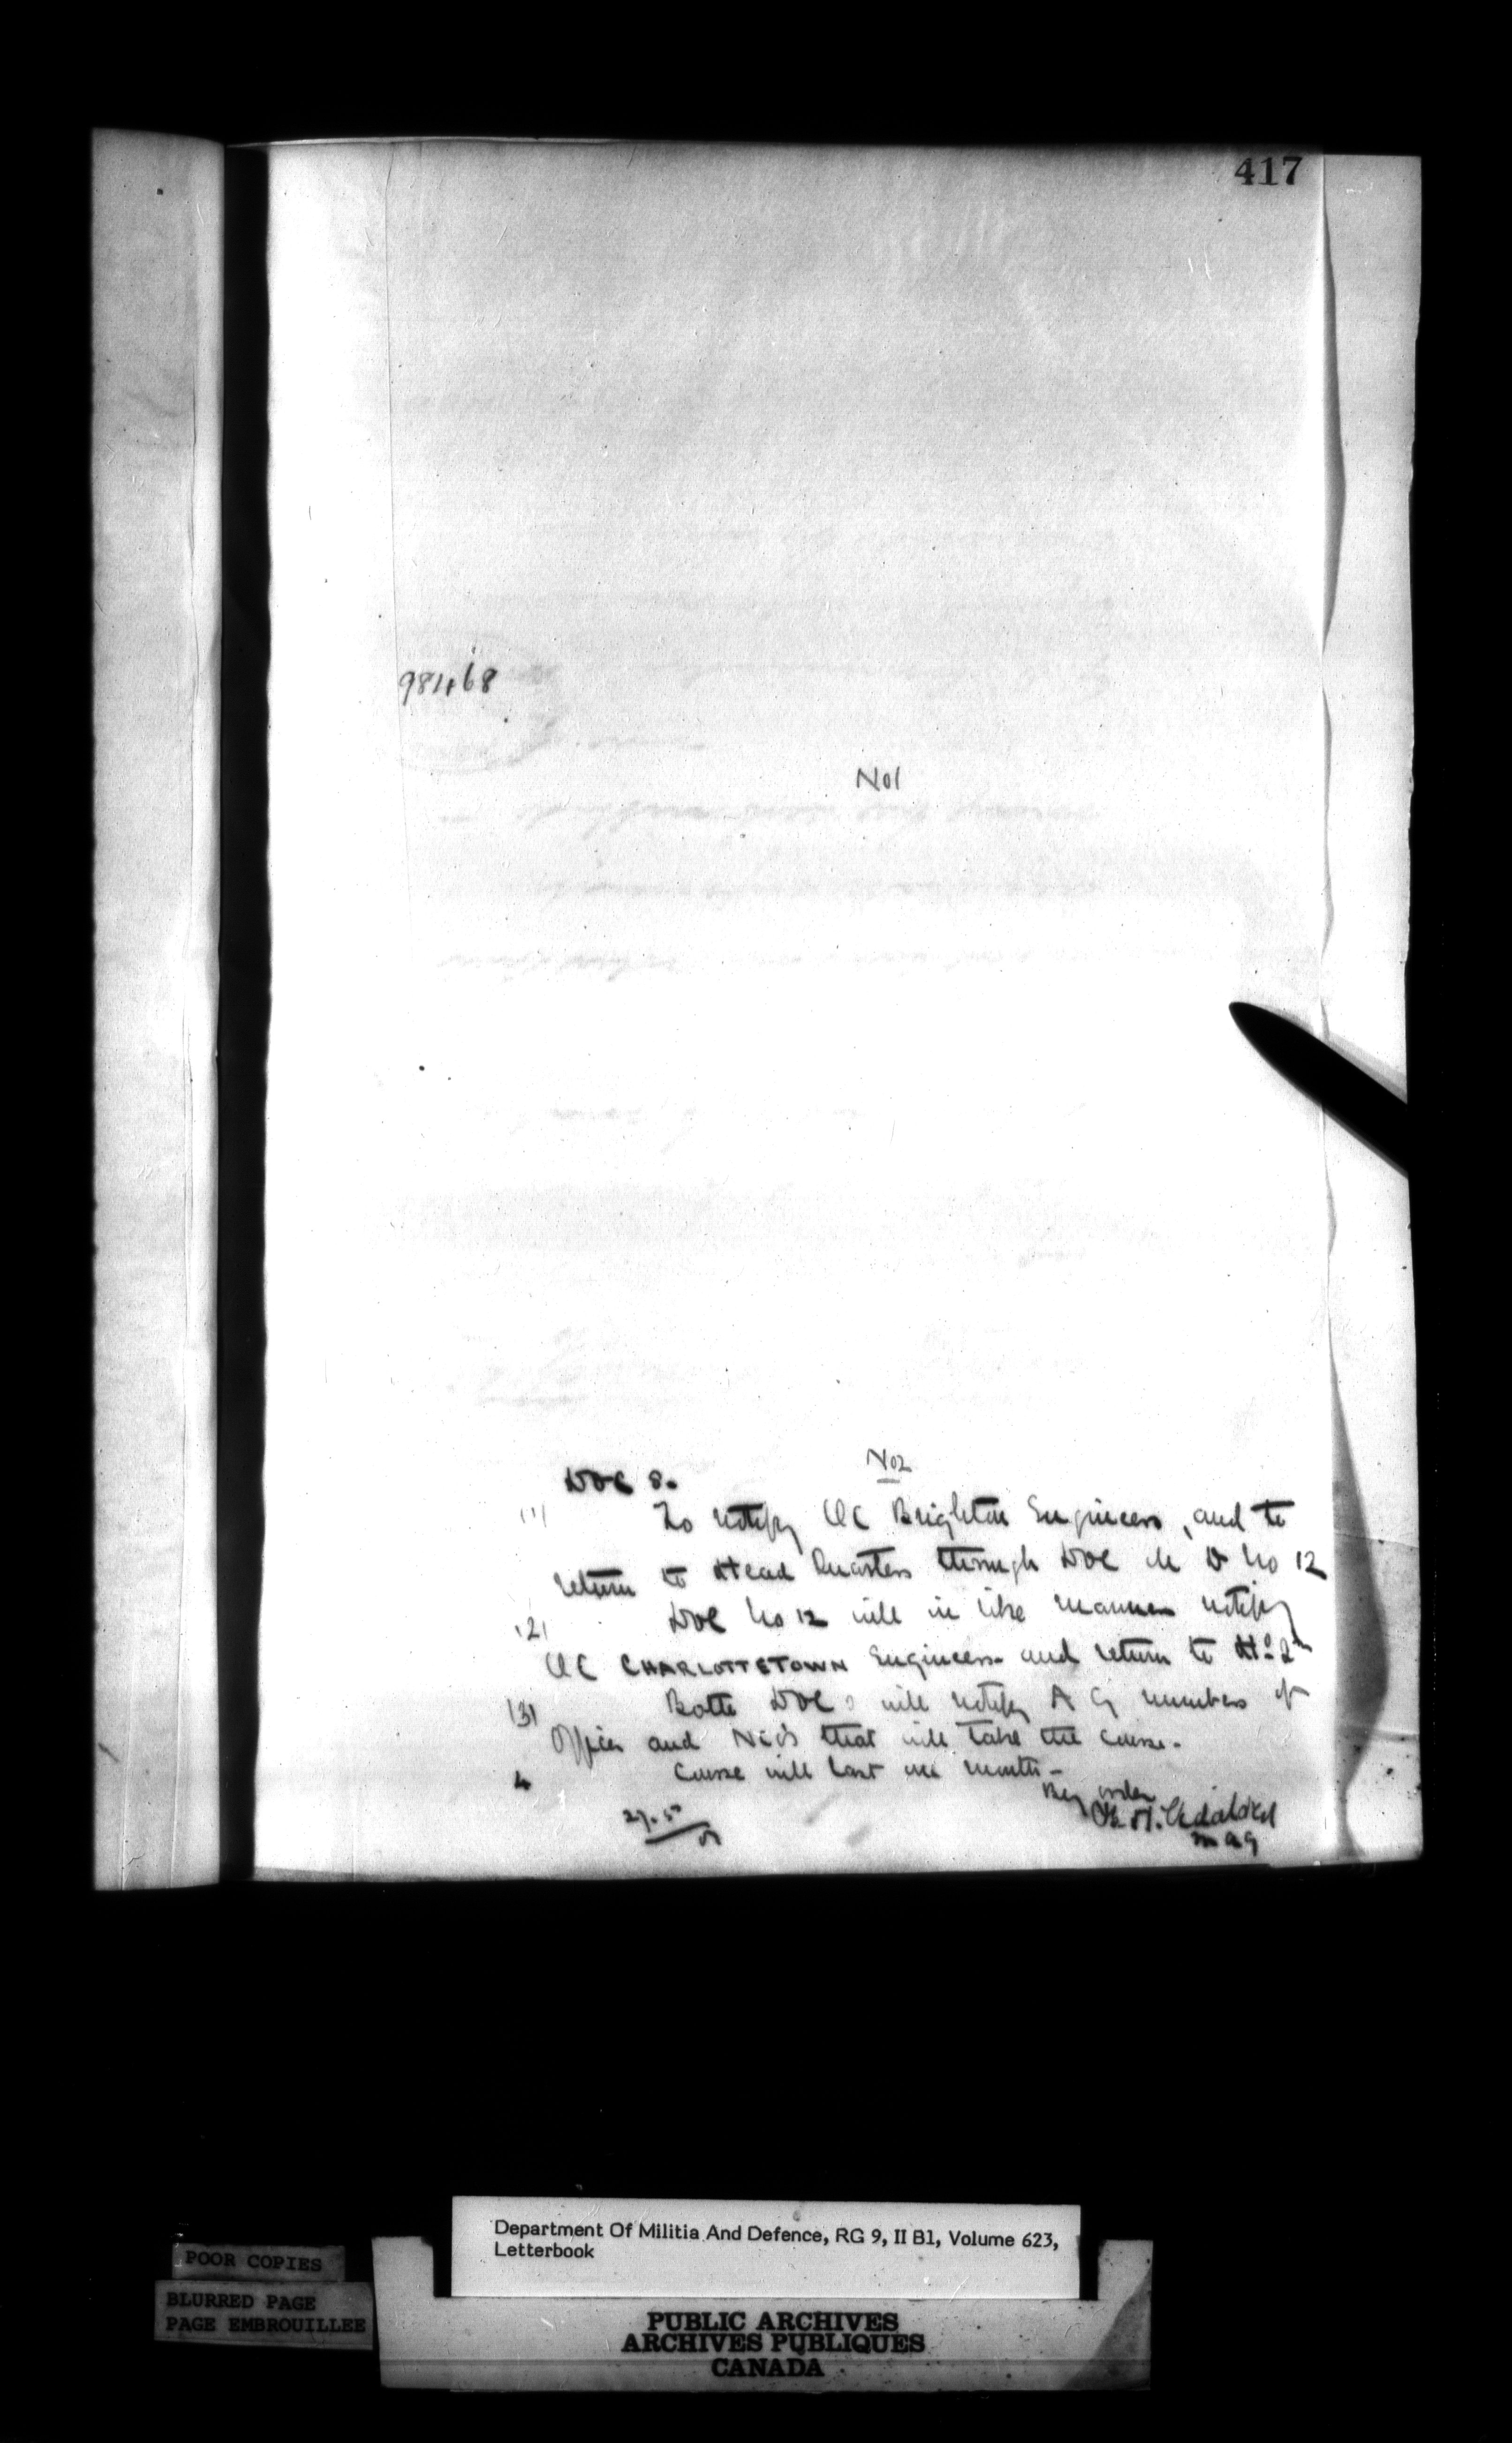 417
98468
No 1
No 2
DOC 8.
(1) To notify OC Brighton Engineers, and to
return to Head Quarters through DOC M D No 12
(2) DOC No 12 will in like manner notify
OC CHARLOTTETOWN Engineers and return to
(3) Both DOCs will notify A G numbers of
Officer and NCOs that will take the course.
4 Course will last one month -
By order
Department Of Militia And Defence, RG 9, II B1, Volume 623,
Letterbook
POOR COPIES
BLURRED PAGE
PAGE EMBROUILLEE
PUBLIC ARCHIVES
ARCHIVES PUBLIQUES
CANADA